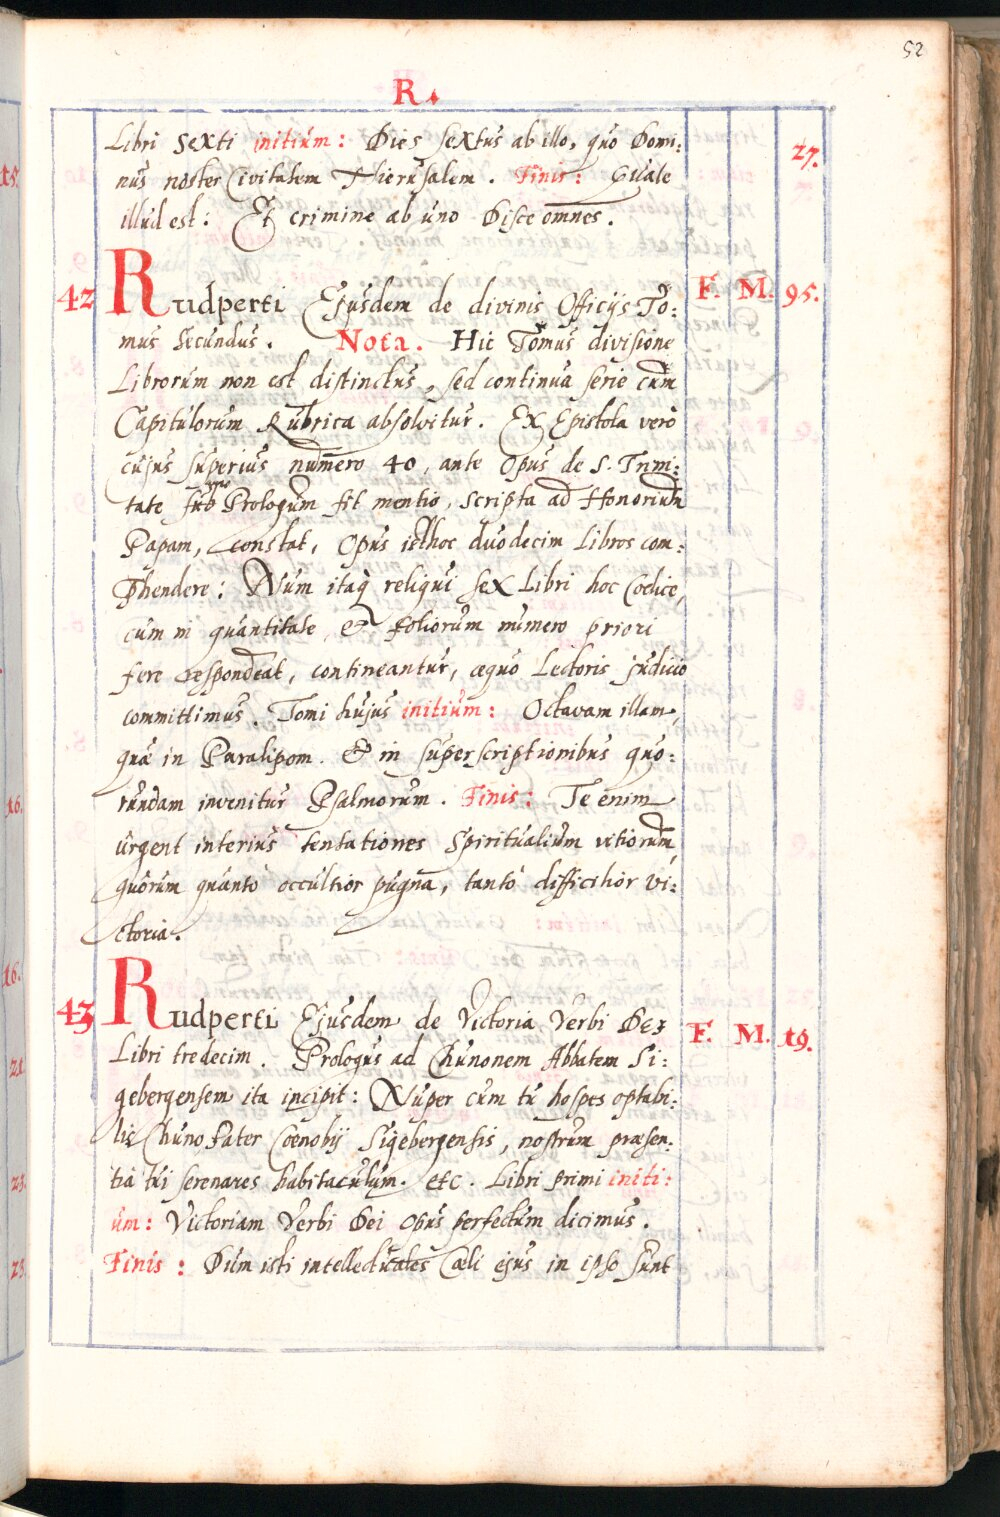 52
R.
Libri Sexti initium: Dies sextus ab illo, quo Domi: 27.
nus noster Civitatem Hierusalem. Finis: Quale
illud est: Et crimine ab uno Disce omnes.
42 Rudperti Ejusdem de divinis Officijs To: F. M. 95.
mus Secundus. Nota. Hic Tomus divisione
Librorum non est distinctus, sed continua serie cum
Capitulorum Rubrica absolvitur. Ex Epistola verò
cujus superius numero 40, ante Opus de S. Trini:
tate sub Prologum fit mentio, scripta ad Honorium
Papam, constat, Opus isthoc duodecim Libros com:
phendere: Num itaq reliqui sex Libri hoc Codice,
cum in quantitate, & foliorum numero priori
fere respondeat, contineantur, æquo Lectoris judicio
committimus. Tomi hujus initium: Octavam illam,
quæ in Paralipom. & in superscriptionibus quo:
rundam invenitur Psalmorum. Finis: Te enim
urgent interius tentationes Spiritualium vitiorum,
quorum quantò occultior pugna, tantò difficilior vi:
ctoria.
43 Rudperti Ejusdem de Victoria Verbi Dei F. M. 19.
Libri tredecim. Prologus ad Chunonem Abbatem Si:
gebergensem ita incipit: Nuper cum tu hospes optabi:
lis Chuno, Pater Coenobij Sigebergensis, nostrum præsen:
tia tui serenares habitaculum. etc. Libri primi initi:
um: Victoriam Verbi Dei opus perfectum dicimus.
Finis: Dum isti intellectuales Cæli ejus in ipso sunt
15.
16.
16.
21.
23.
23.